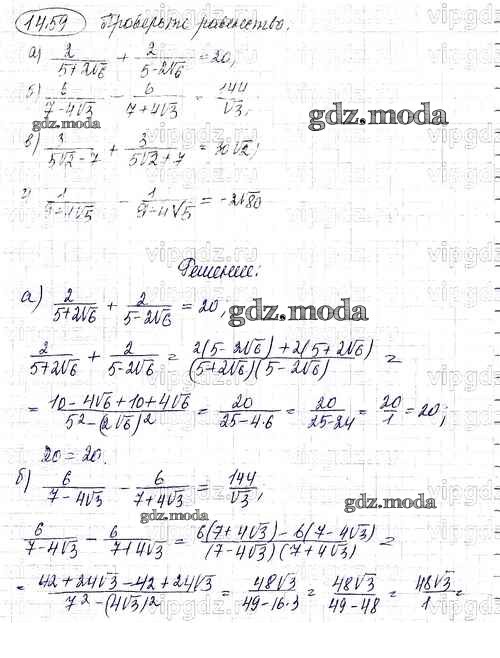 14.59 Проверьте равенство.
а) 2/(5+2√6) + 2/(5-2√6) = 20;
б) 6/(7-4√3) - 6/(7+4√3) = 144/√3;
gdz.moda
gdz.moda
в) 3/(5√2-7) + 3/(5√2+7) = 30√2;
Решение.
а) 2/(5+2√6) + 2/(5-2√6) = 20;
gdz.moda
2/(5+2√6) + 2/(5-2√6) = (2(5-2√6)+2(5+2√6))/((5+2√6)(5-2√6)) =
= (10-4√6+10+4√6)/(5²-(2√6)²) = 20/(25-4·6) = 20/(25-24) = 20/1 = 20;
20 = 20.
б) 6/(7-4√3) - 6/(7+4√3) = 144/√3;
gdz.moda
6/(7-4√3) - 6/(7+4√3) = (6(7+4√3)-6(7-4√3))/((7-4√3)(7+4√3)) =
= (42+24√3-42+24√3)/(7²-(4√3)²) = 48√3/(49-16·3) = 48√3/(49-48) = 48√3/1 =